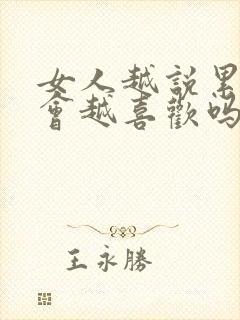 女人越説男
會越喜歡吗
王永勝